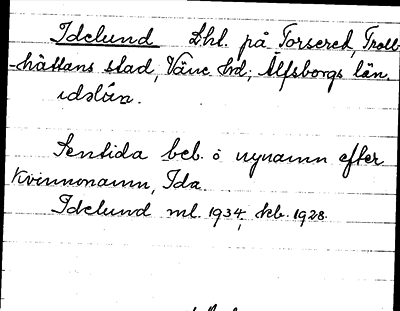 Idelund Lht. på Torsered, Troll-
-hättans stad, Väne hd; Älfsborgs län.
Sentida beb. o nynamn efter
Kvinnonamn, Ida.
Idelund ml. 1934, kb. 1928.